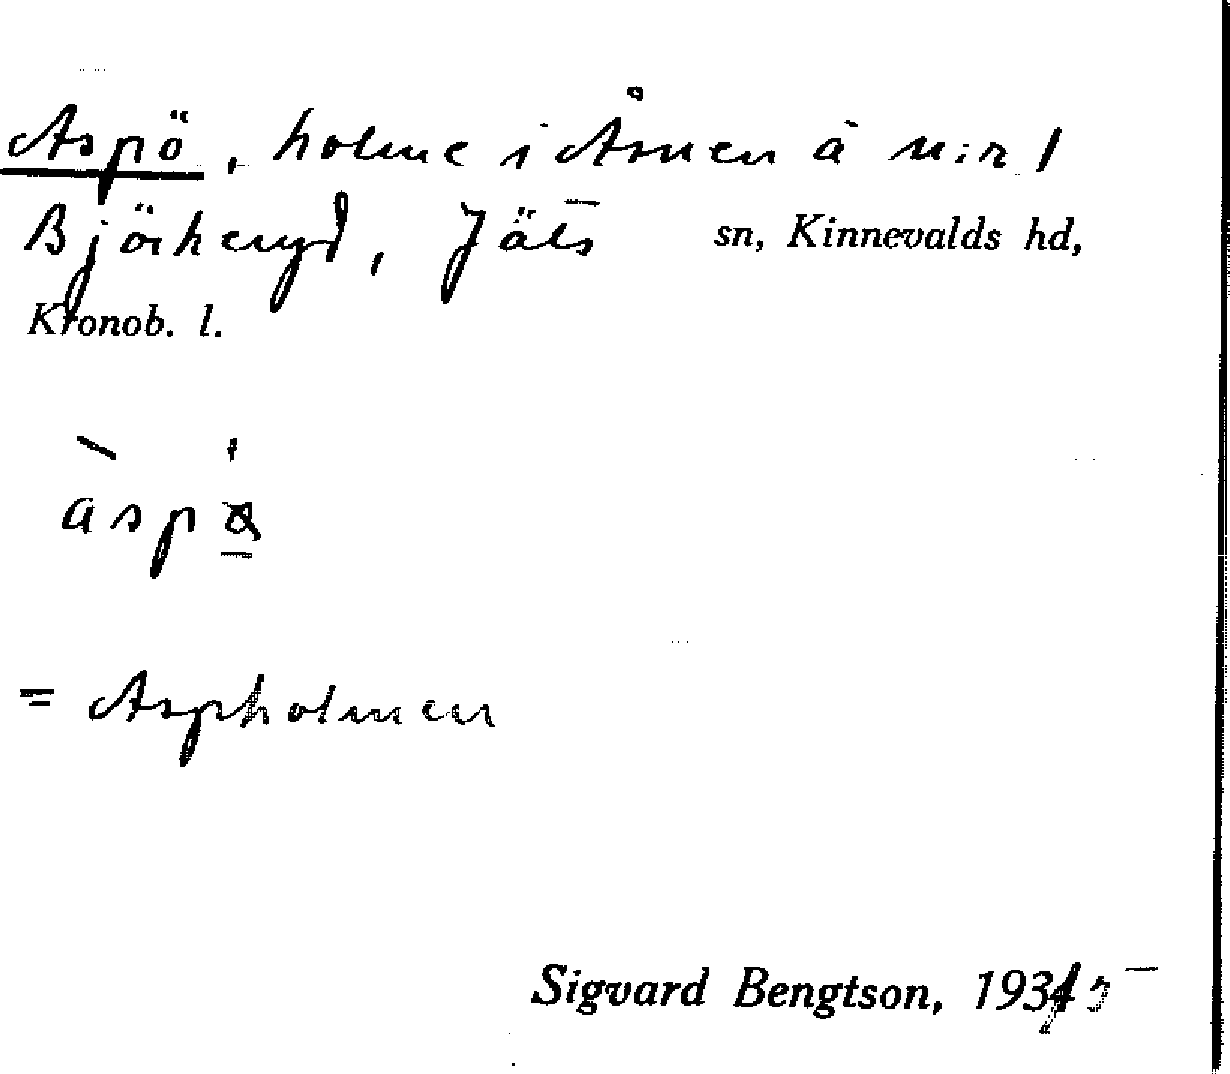 Aspö, holme i Åsnen å n:r 1
Björkeryd, Jäts sn, Kinnevalds hd,
Kronob. l.
= Aspholmen
Sigvard Bengtson, 1935